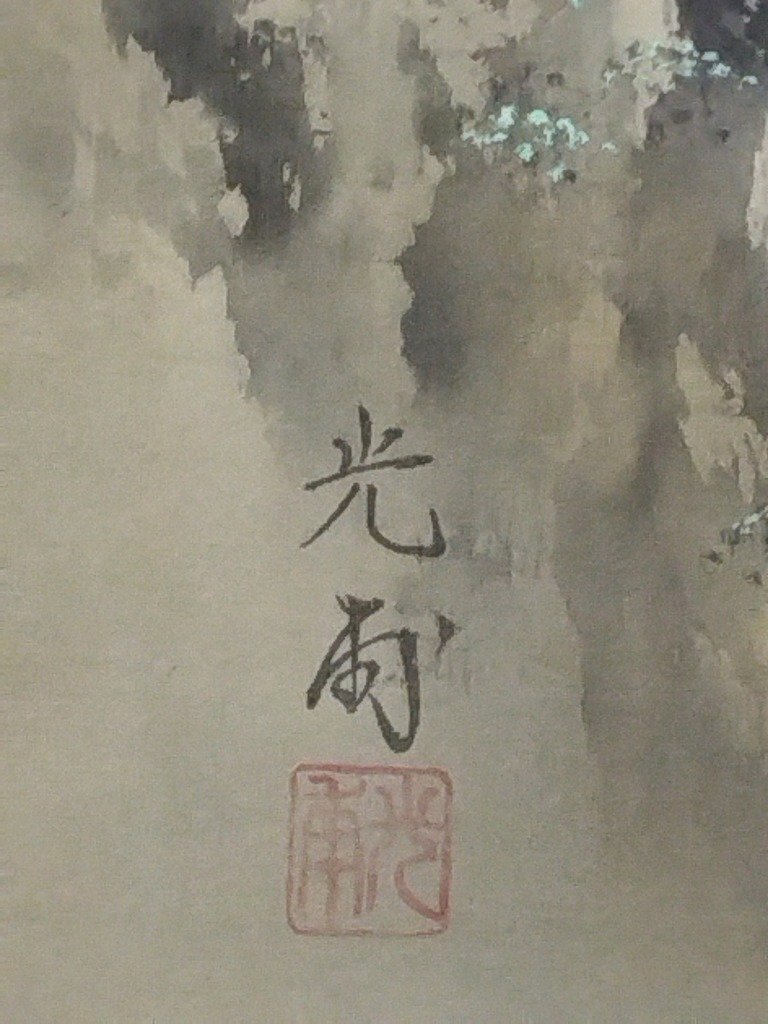 光甫
光甫